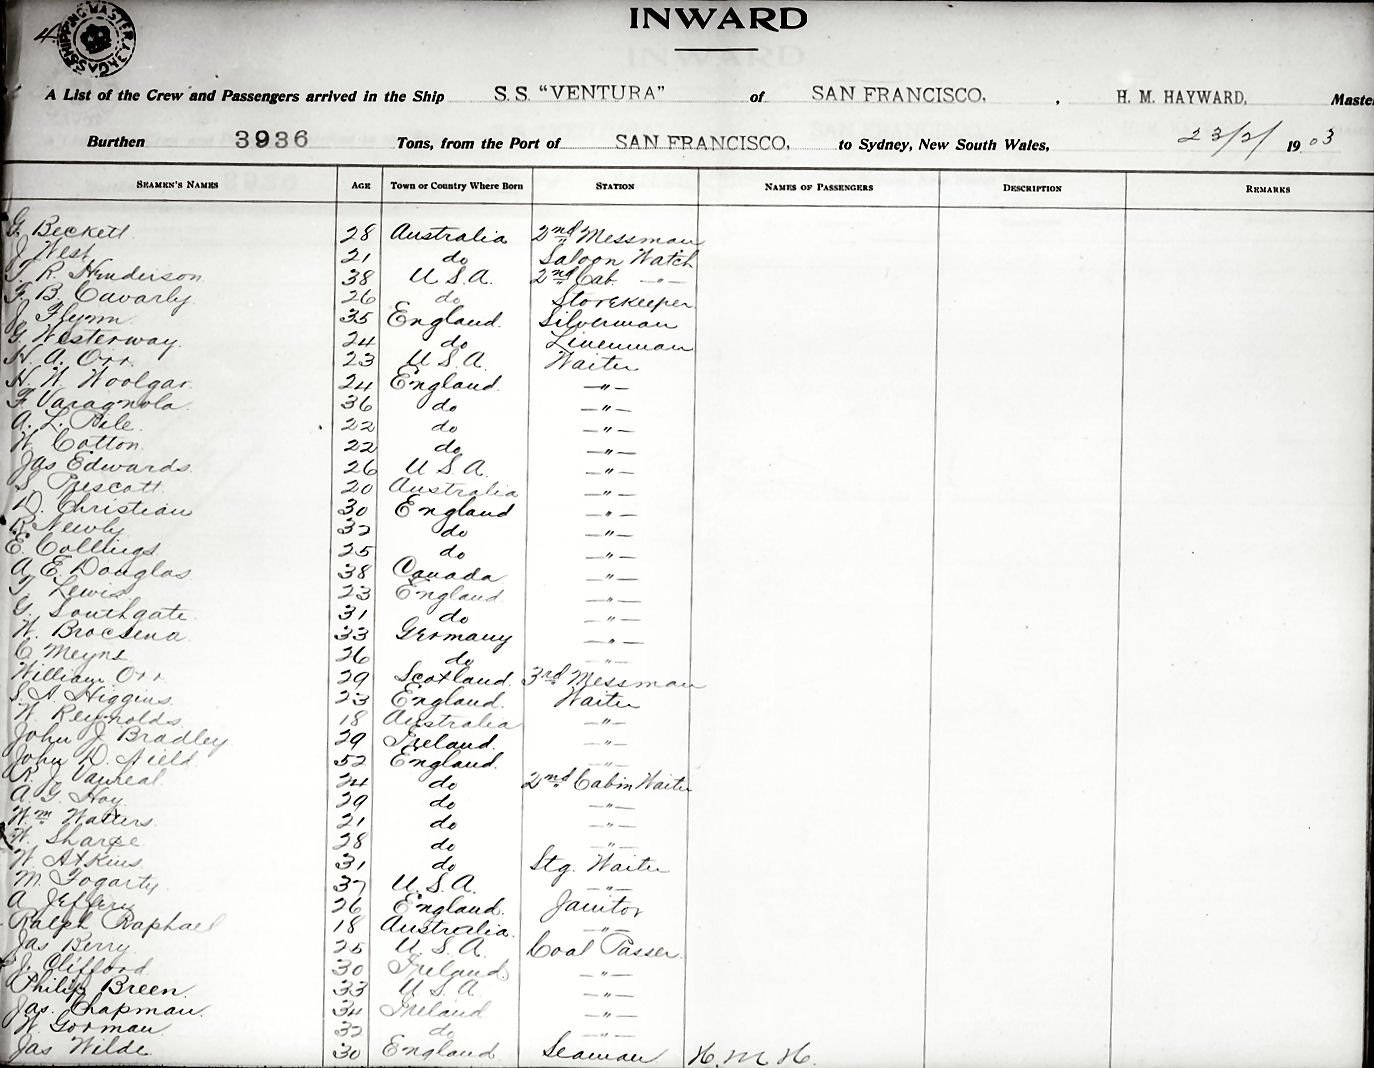 4
INWARD
A List of the Crew and Passengers arrived in the Ship S.S. "VENTURA" of SAN FRANCISCO, , H. M. HAYWARD, Maste
Burthen 3936 Tons, from the Port of SAN FRANCISCO, to Sydney, New South Wales, 23/2/ 1903
SEAMEN'S NAMES AGE Town or Country Where Born STATION NAMES OF PASSENGERS DESCRIPTION REMARKS
G. Beckett 28 Australia 2nd Messman
J West 21 do Saloon Watch
T. R. Henderson 38 U.S.A. 2nd Cab. -"-
F. B. Cavarly 26 do Storekeeper
J Flynn 35 England. Silverman
G. Westerway. 24 do Linenman
H. A. Orr. 23 U.S.A. Waiter
H. W. Woolgar. 24 England. -"-
F. Varagnola. 36 do -"-
A. L. Pile. 22 do -"-
W. Cotton. 22 do -"-
Jas Edwards. 26 U.S.A. -"-
S. Prescott. 20 Australia -"-
D. Christian 30 England -"-
R Newby 32 do -"-
E. Collings 25 do -"-
A. E. Douglas 38 Canada -"-
T. Lewis 23 England. -"-
G. Southgate 31 do -"-
W. Brocsena 33 Germany -"-
C Meyns 26 do -"-
William Orr 29 Scotland. 3rd Messman
S. A. Higgins 23 England. Waiter
W. Reynolds 18 Australia -"-
John J Bradley 29 Ireland. -"-
John D. Nield. 52 England. -"-
R. J. Vanreal 24 do 2nd Cabin Waiter
A. G. Hoy 29 do -"-
Wm Watters 21 do -"-
W. Sharpe 28 do -"-
W. Atkins 31 do Stg. Waiter
M. Fogarty 37 U.S.A. -"-
A Jeffery 26 England. Janitor
Ralph Raphael 18 Australia. -"-
Jas Berry 25 U.S.A. Coal Passer.
J. Clifford 30 Ireland -"-
Philip Breen. 33 U.S.A -"-
Jas. Chapman. 34 Ireland -"-
W. Gorman 32 do -"-
Jas Wilde 30 England Seaman H. M H.